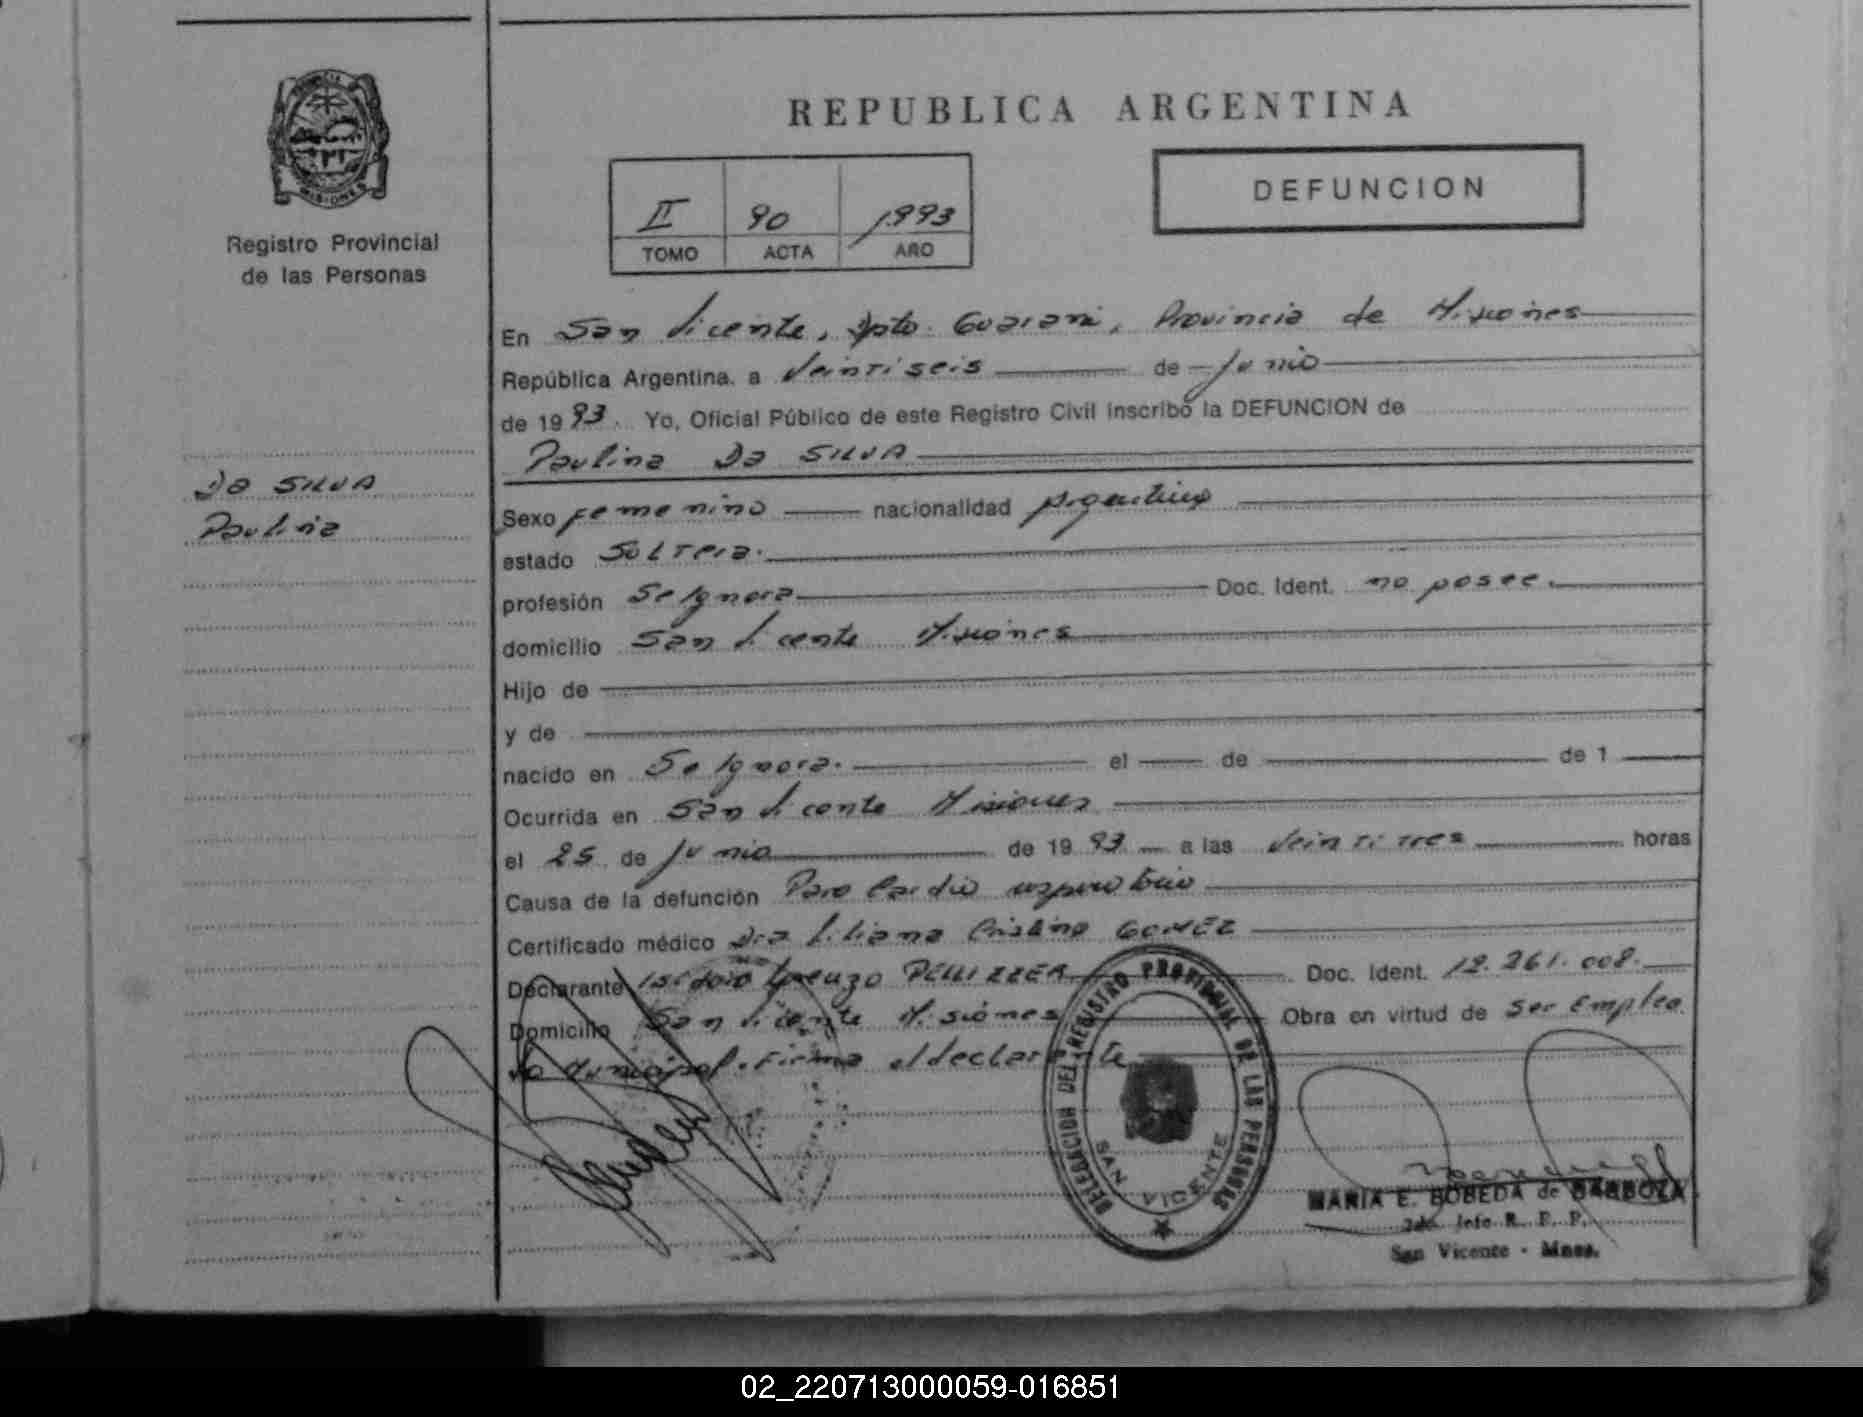 PROVINCIA DE
MISIONES
Registro Provincial
de las Personas
DA SILVA
Paulina
REPUBLICA ARGENTINA
II 90 1993
TOMO ACTA AÑO
DEFUNCION
En San Vicente, Dpto. Guarani, Provincia de Misiones
República Argentina, a Veintiseis de Junio
de 1993. Yo, Oficial Público de este Registro Civil inscribo la DEFUNCION de
Paulina Da SILVA
Sexo femenino nacionalidad Argentina
estado Soltera.
profesión Se Ignora Doc. Ident. no posee.
domicilio San Vicente Misiones
Hijo de
y de
nacido en Se Ignora. el de de 1
Ocurrida en San Vicente Misiones
el 25 de Junio de 1993 a las Veintitres horas
Causa de la defunción Paro Cardio respiratorio
Certificado médico Dra Liliana Cristina GOMEZ
Declarante Isidoro Lorenzo PELLIZZER Doc. Ident. 12.261.008.
Domicilio San Vicente Misiones Obra en virtud de Ser Emplea
do Municipal. Firma el declarante
DELEGACION DEL REGISTRO PROVINCIAL DE LAS PERSONAS
SAN VICENTE
MARIA E. BOBEDA de BARBOZA
2do. Jefe R. P. P.
San Vicente - Mnes.
02_220713000059-016851